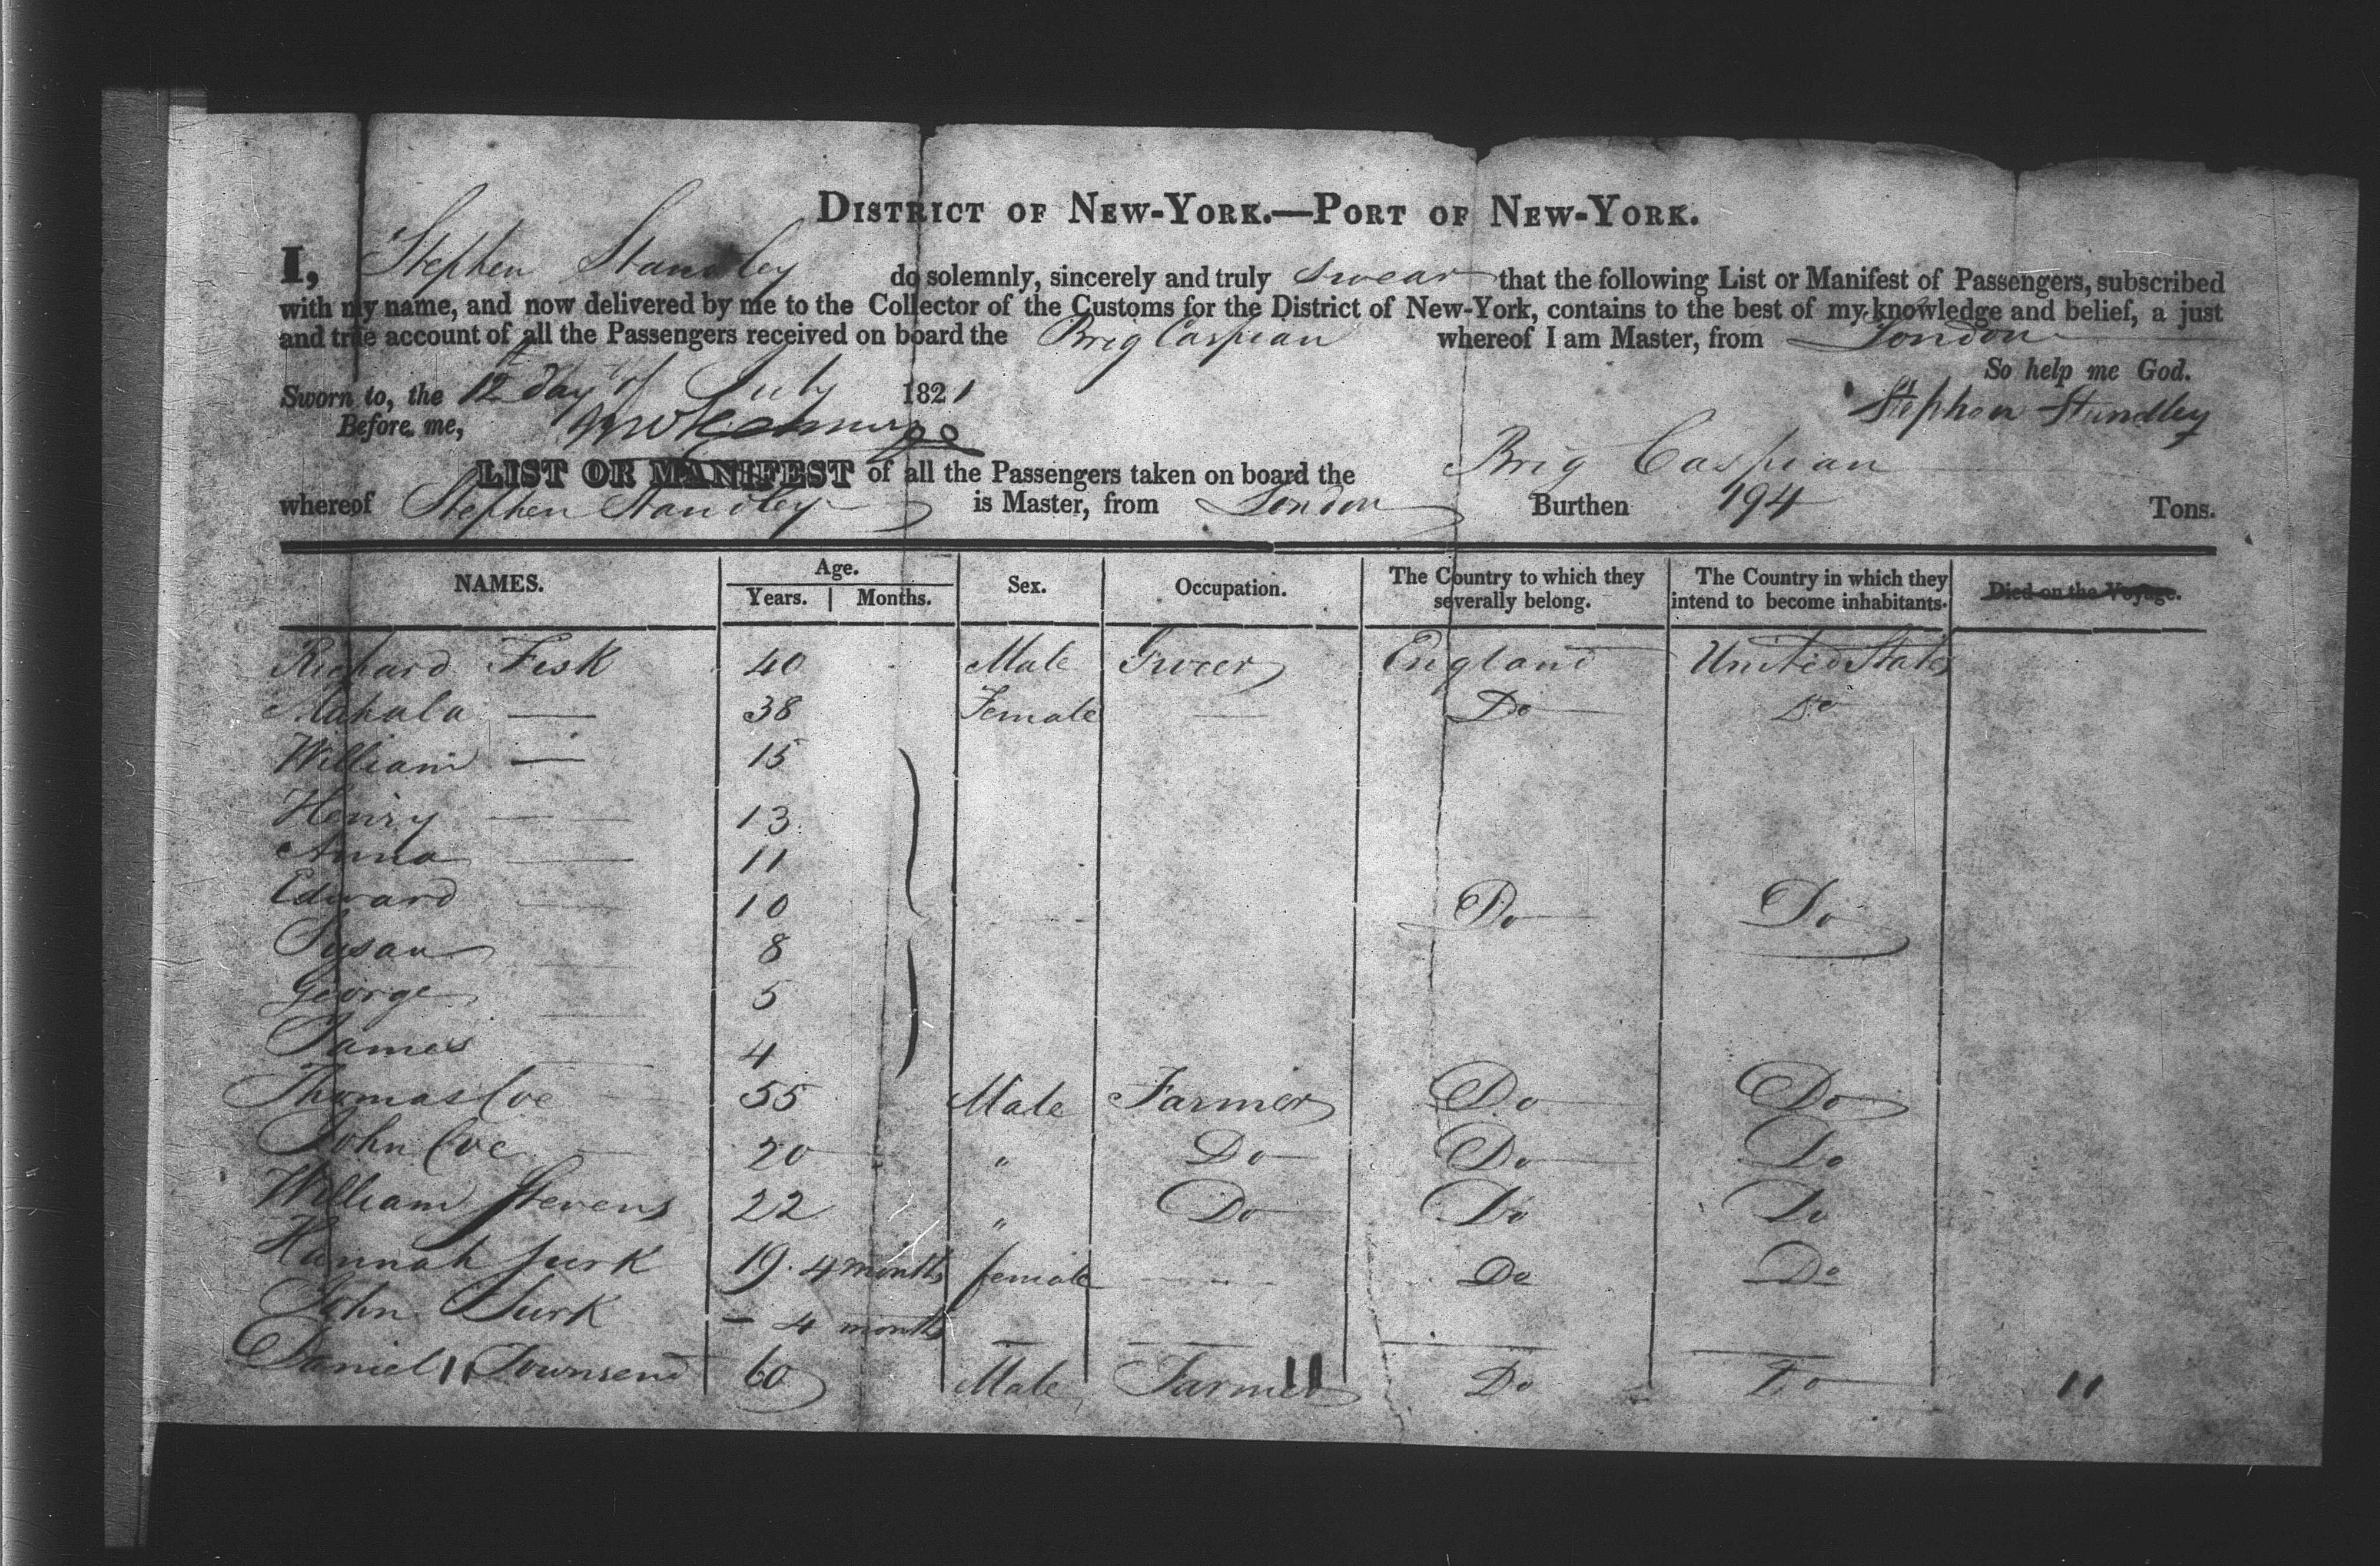 DISTRICT OF NEW-YORK.—PORT OF NEW-YORK.
I, Stephen Standley do solemnly, sincerely and truly swear that the following List or Manifest of Passengers, subscribed
with my name, and now delivered by me to the Collector of the Customs for the District of New-York, contains to the best of my knowledge and belief, a just
and true account of all the Passengers received on board the Brig Caspian whereof I am Master, from London
So help me God.
Sworn to, the 12th day of July 1821
Stephen Standley
Before me,
LIST OR MANIFEST of all the Passengers taken on board the Brig Caspian
whereof Stephen Standley is Master, from London Burthen 194 Tons.
NAMES. Age. Years. Months. Sex. Occupation. The Country to which they severally belong. The Country in which they intend to become inhabitants. Died on the Voyage.
Richard Fisk 40 Male Grocer England United States
Mahala — 38 Female — Do Do
William — 15
Henry — — 13
Anna — 11
Edward — 10 Do Do
Susan — 8
George — 5
James — 4
Thomas Coe 55 Male Farmer Do Do
John Coe 20 " Do Do Do
William Stevens 22 " Do Do Do
Hannah 19. 4 months female Do Do
John — 4 months — — — —
Daniel Townsend 60 Male Farmer Do Do